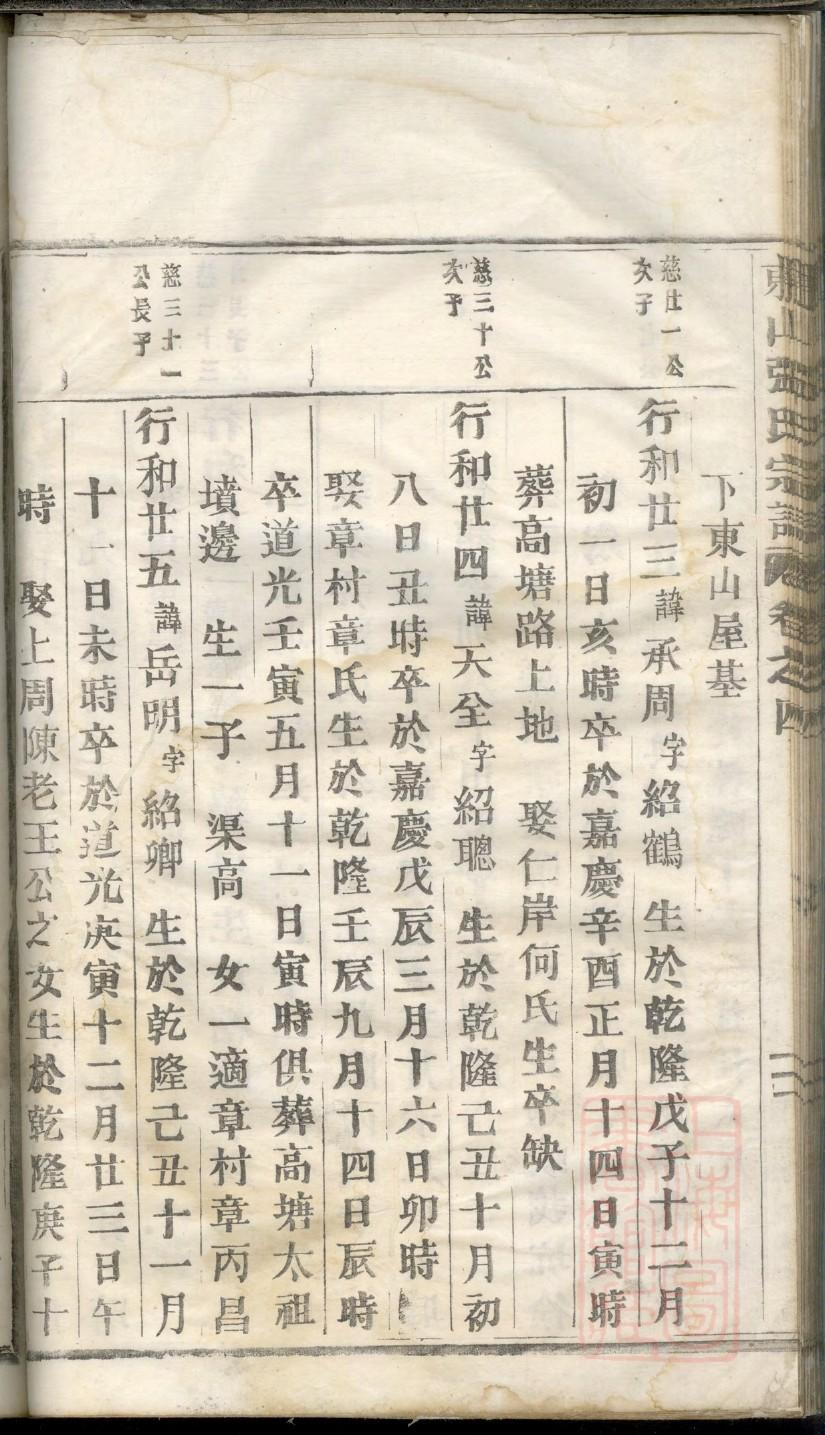 龍山張氏宗譜 卷之四
下東山屋基
慈廿一公
次子
行和廿三諱承周字紹鶴 生於乾隆戊子十二月
初一日亥時卒於嘉慶辛酉正月十四日寅時
葬高塘路上地 娶仁岸何氏生卒缺
慈三十公
次子
行和廿四諱天全字紹聰 生於乾隆己丑十月初
八日丑時卒於嘉慶戊辰三月十六日卯時
娶章村章氏生於乾隆壬辰九月十四日辰時
卒道光壬寅五月十一日寅時俱葬高塘太祖
墳邊 生一子 渠高 女一適章村章丙昌
慈三十一
公長子
行和廿五諱岳明字紹卿 生於乾隆己丑十一月
十一日未時卒於道光庚寅十二月廿三日午
時 娶上周陳老王公之女生於乾隆庚子十